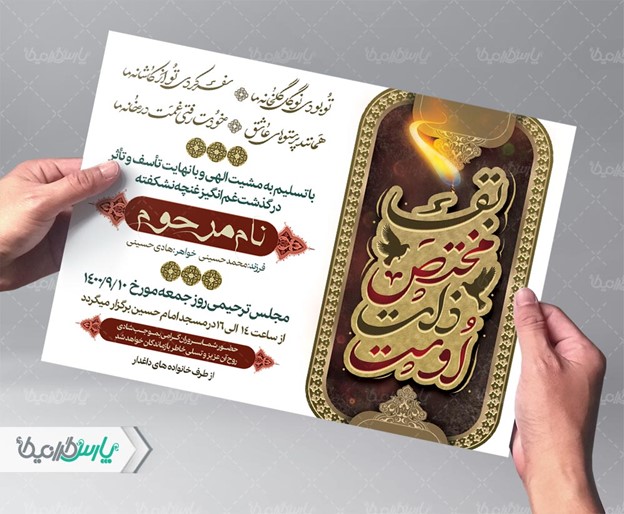 تو بودی نوگل گلخانه ما
سفر کردی تو از کاشانه ما
همانند پرستوهای عاشق
خوبت رفتی غمت در خانه ما
با تسلیم به مشیت الهی و با نهایت تأسف و تأثر
درگذشت غم انگیز غنچه نشکفته
نام مرحوم
فرزند: محمد حسینی خواهر: هادی حسینی
مجلس ترحیمی روز جمعه مورخ ۱۴۰۰/۹/۱۰
از ساعت ۱۴ الی ۱۶ در مسجد امام حسین برگزار میگردد
حضور شما سروران گرامی موجب شادی
روح آن عزیز و تسلی خاطر بازماندگان خواهد شد
از طرف خانواده های داغدار
بقا
مختص
ذات
اوست
پارس گرافیک